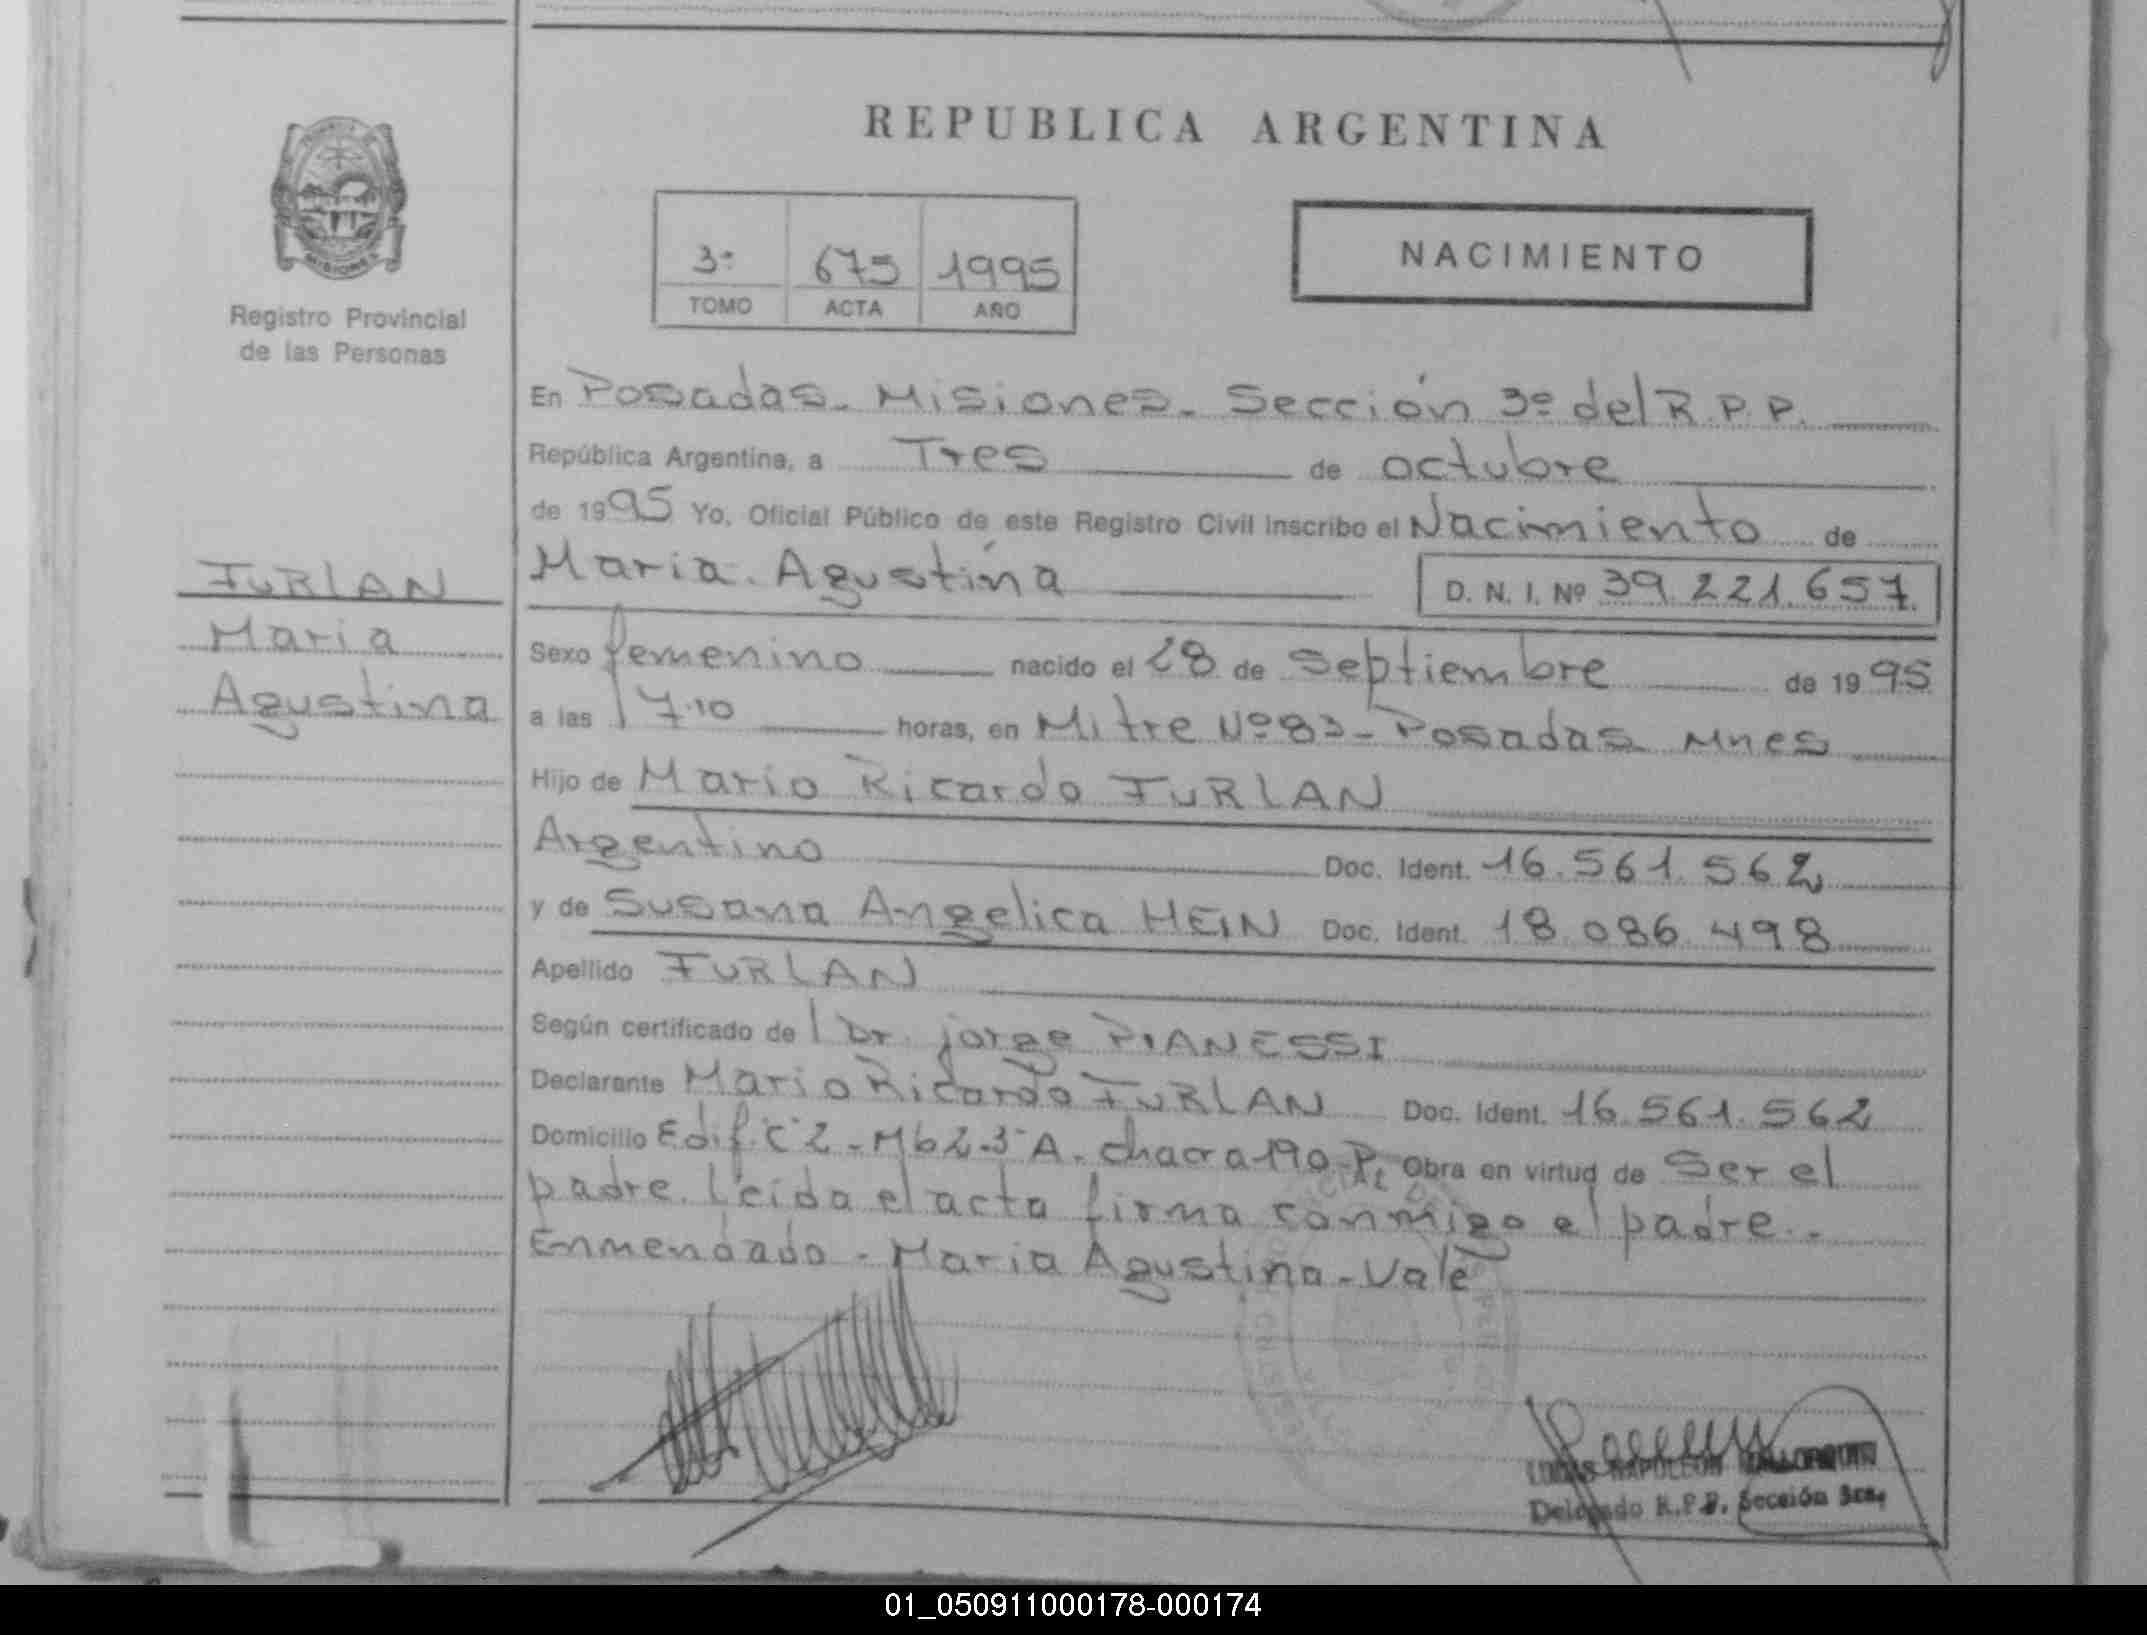 REPUBLICA ARGENTINA
MISIONES
Registro Provincial
de las Personas
3º 675 1995
TOMO ACTA AÑO
NACIMIENTO
En Posadas - Misiones - Sección 3º del R.P.P.
República Argentina, a Tres de octubre
de 1995 Yo, Oficial Público de este Registro Civil inscribo el Nacimiento de
María Agustina D. N. I. Nº 39.221.657
FURLAN
Maria
Agustina
Sexo femenino nacido el 28 de Septiembre de 1995
a las 17.10 horas, en Mitre Nº 83 - Posadas Mnes
Hijo de Mario Ricardo FURLAN
Argentino Doc. Ident. 16.561.562
y de Susana Angelica HEIN Doc. Ident. 18.086.498
Apellido FURLAN
Según certificado del Dr. jorge PIANESSI
Declarante Mario Ricardo FURLAN Doc. Ident. 16.561.562
Domicilio Edif. C 2 - Mb 2 - 3º A - chacra 190 - P. Obra en virtud de Ser el
padre. Leída el acta firma conmigo el padre. -
Enmendado - Maria Agustina - Vale
LUCAS NAPOLEON
Delegado R.P.P. Sección 3ra.
01_050911000178-000174